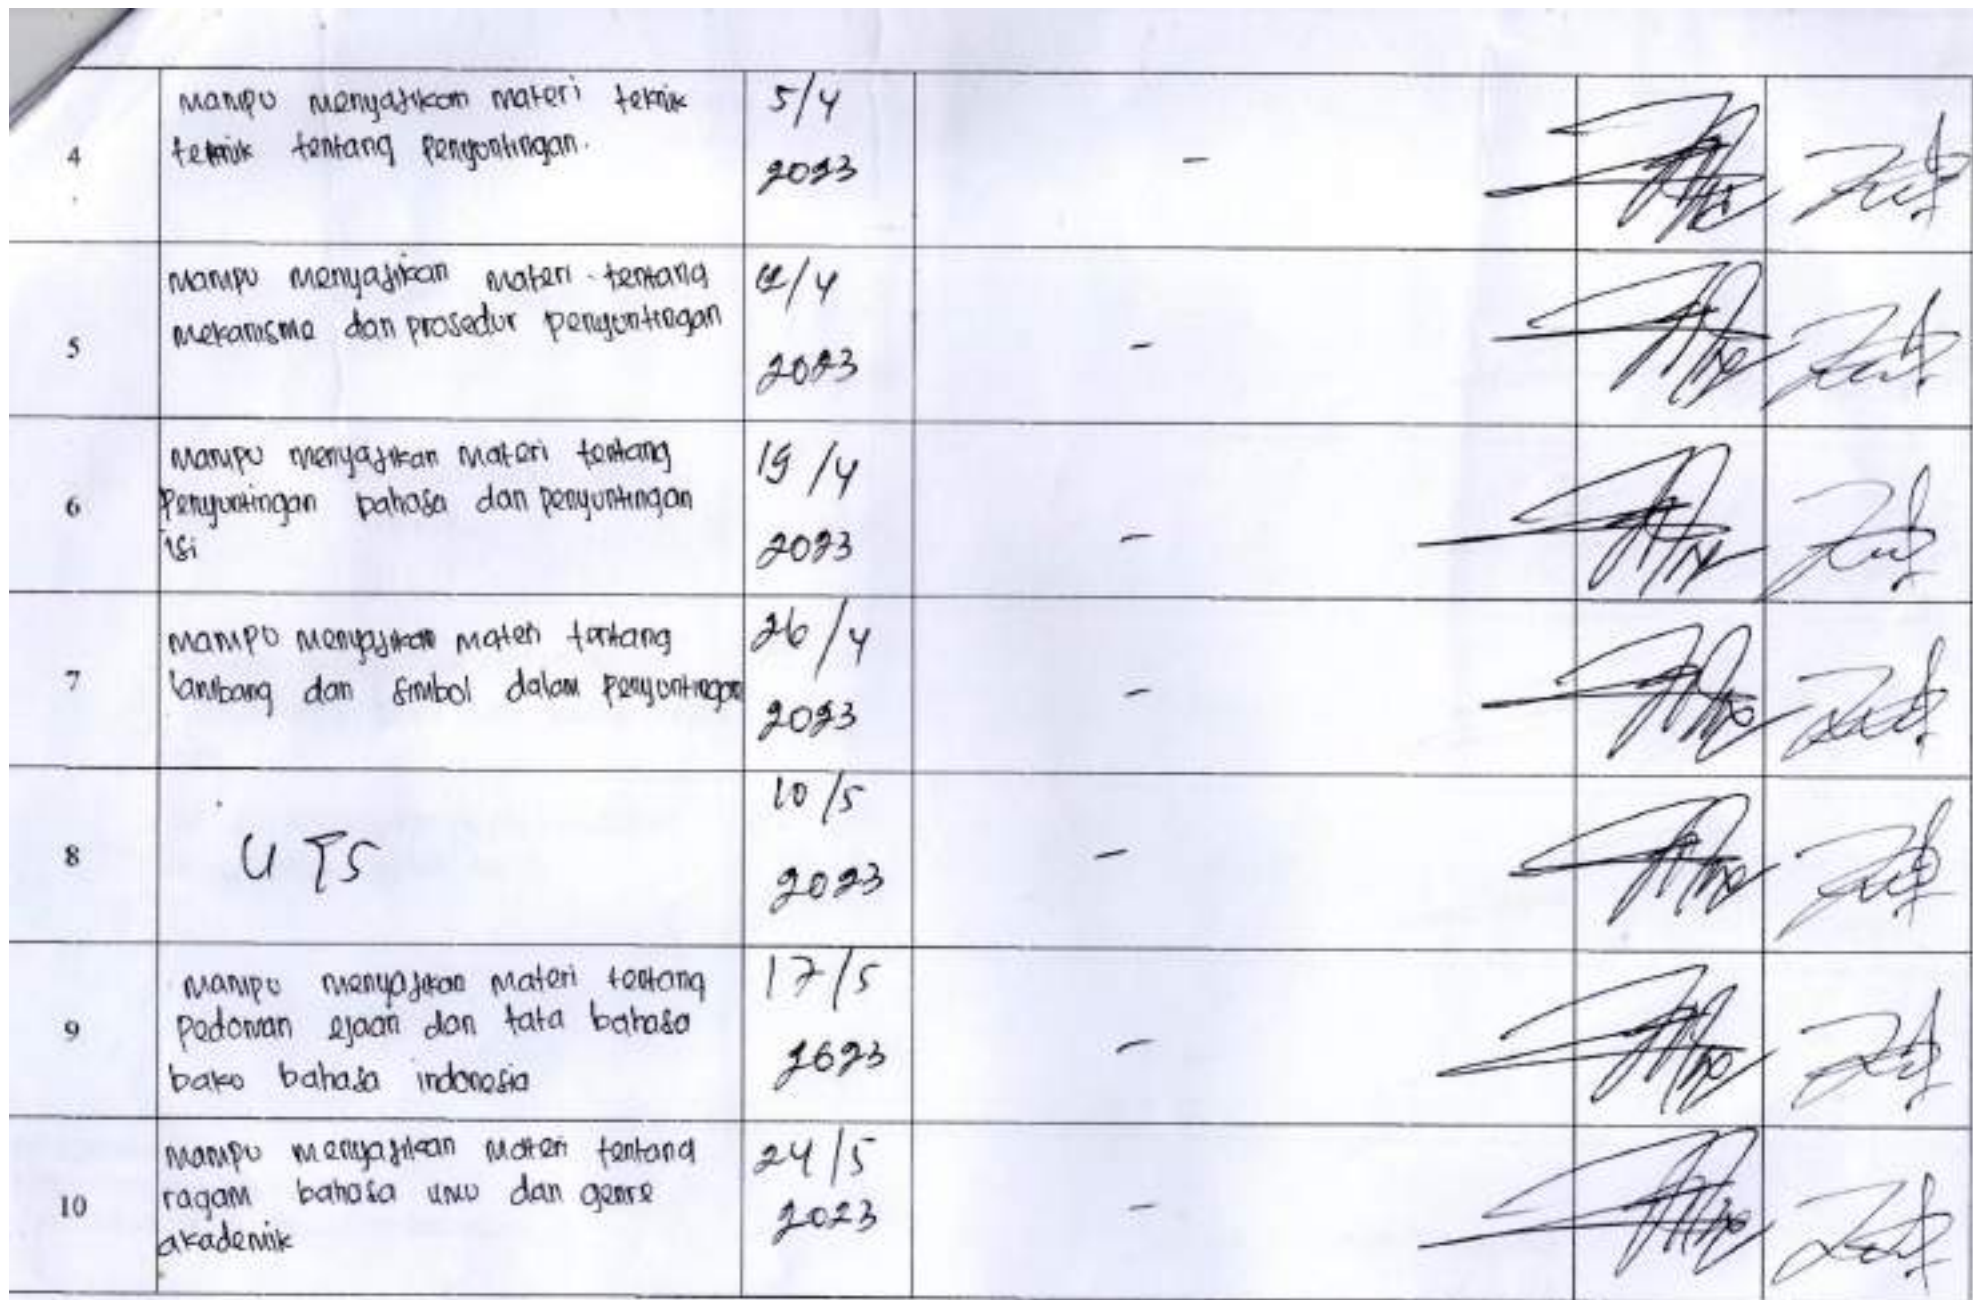 4
mampu menyajikan materi teknik
teknik tentang penyuntingan.
5/4
2023
-
5
mampu menyajikan materi tentang
mekanisme dan prosedur penyuntingan
12/4
2023
-
6
mampu menyajikan materi tentang
penyuntingan bahasa dan penyuntingan
isi
19/4
2023
-
7
mampu menyajikan materi tentang
lambang dan simbol dalam penyuntingan
26/4
2023
-
8
UTS
10/5
2023
-
9
mampu menyajikan materi tentang
pedoman ejaan dan tata bahasa
baku bahasa indonesia
17/5
2023
-
10
mampu menyajikan materi tentang
ragam bahasa dan genre
akademik
24/5
2023
-